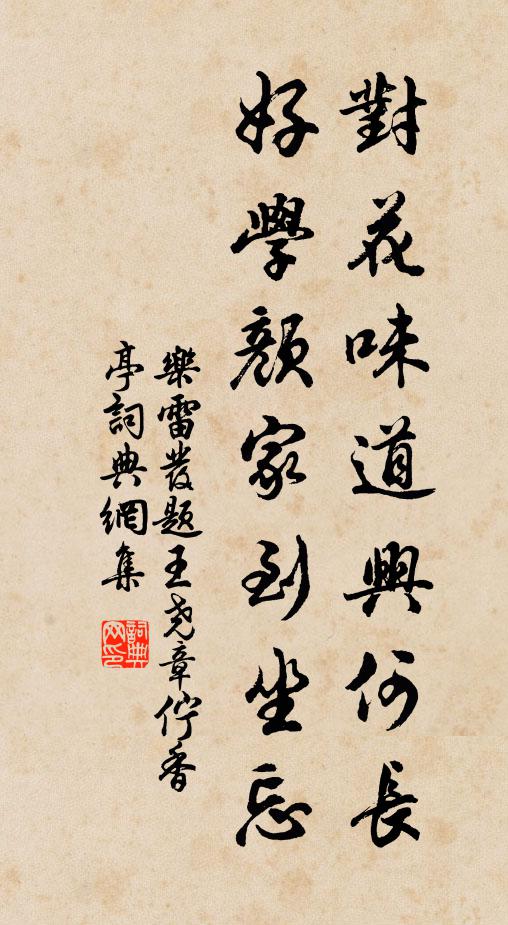 對花味道興何長
好學顏家到坐忘
樂雷發題王堯章佇香
亭詞典網集
詞典
网印